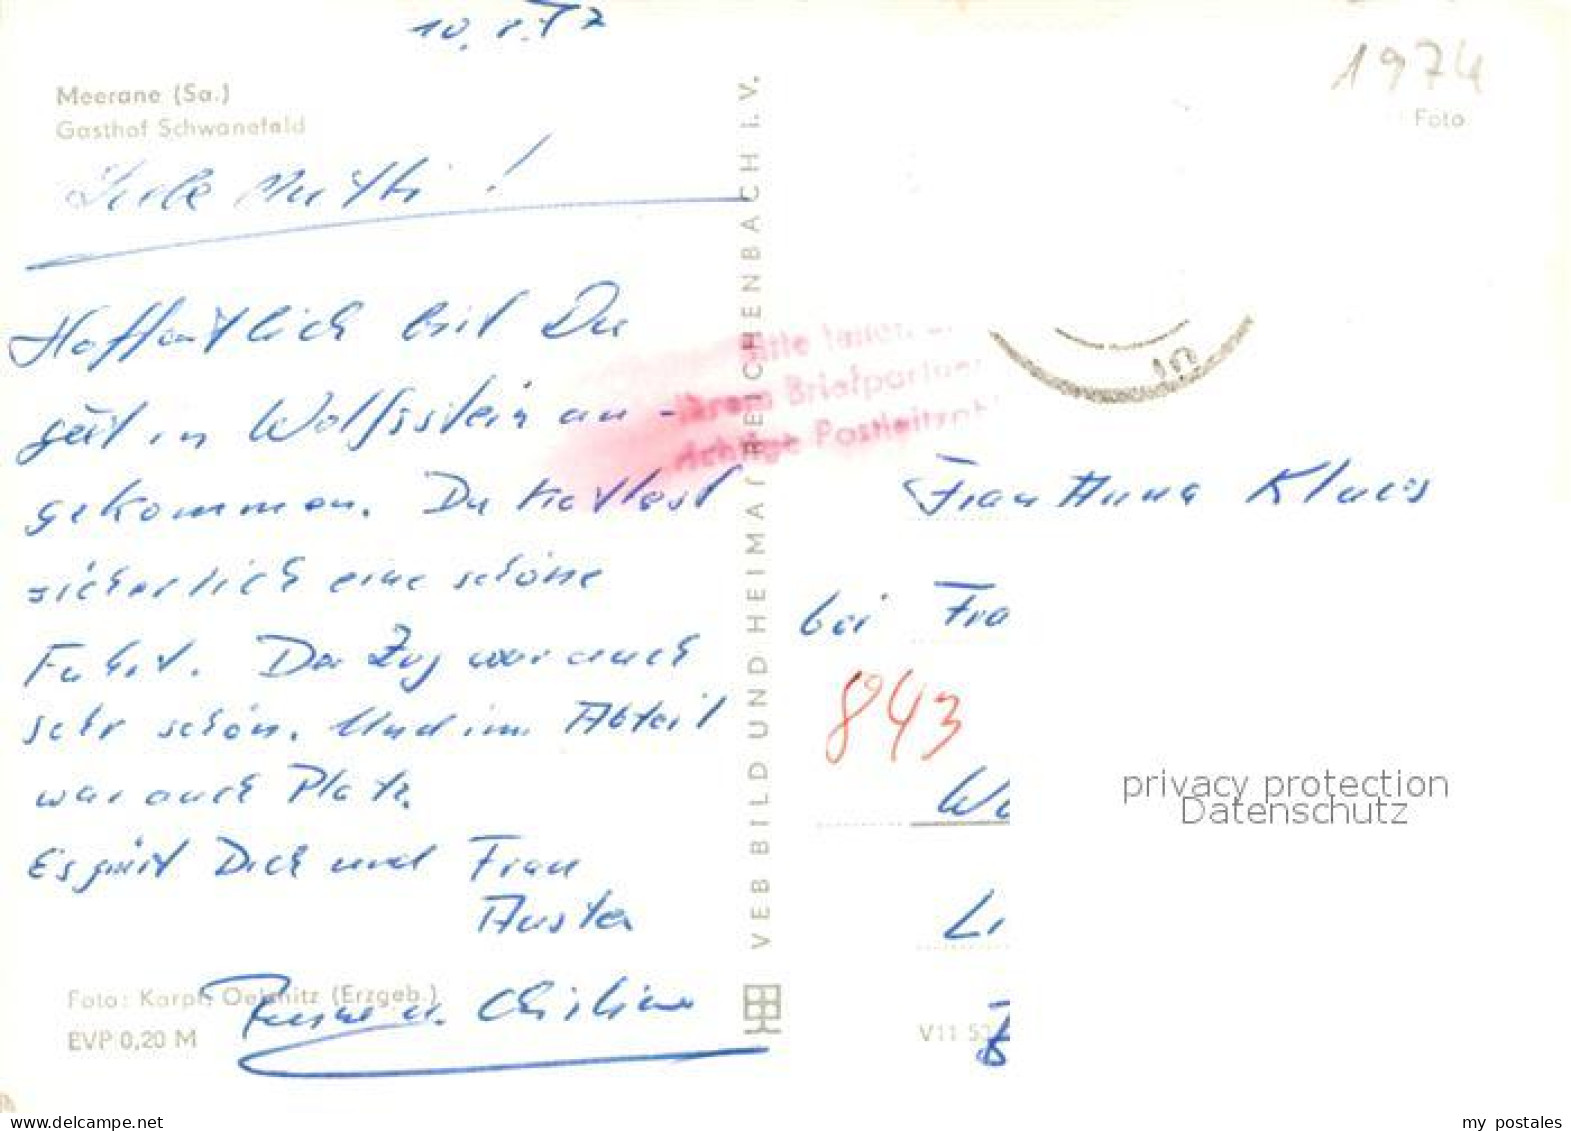 10. 8. 77
Meerane (Sa.)
Gasthof Schwanefeld
1974
Foto
Liebe Mutti!
Hoffentlich bist Du
gut in Wolfsstein an-
gekommen. Du hattest
sicherlich eine schöne
Fahrt. Der Zug war auch
sehr schön. Und im Abteil
war auch Platz.
Es grüßt Dich und Frau
Auster
u. Christine
Foto: Karpf, Oelsnitz (Erzgeb.)
EVP 0,20 M
VEB BILD UND HEIMAT REICHENBACH i. V.
Bitte teilen
Ihrem Briefpartner
richtige Postleitzahl
10
Frau Anna Klaus
bei Fra
843
Wu
Li
V11 5
privacy protection
Datenschutz
delcampe.net
my_postales